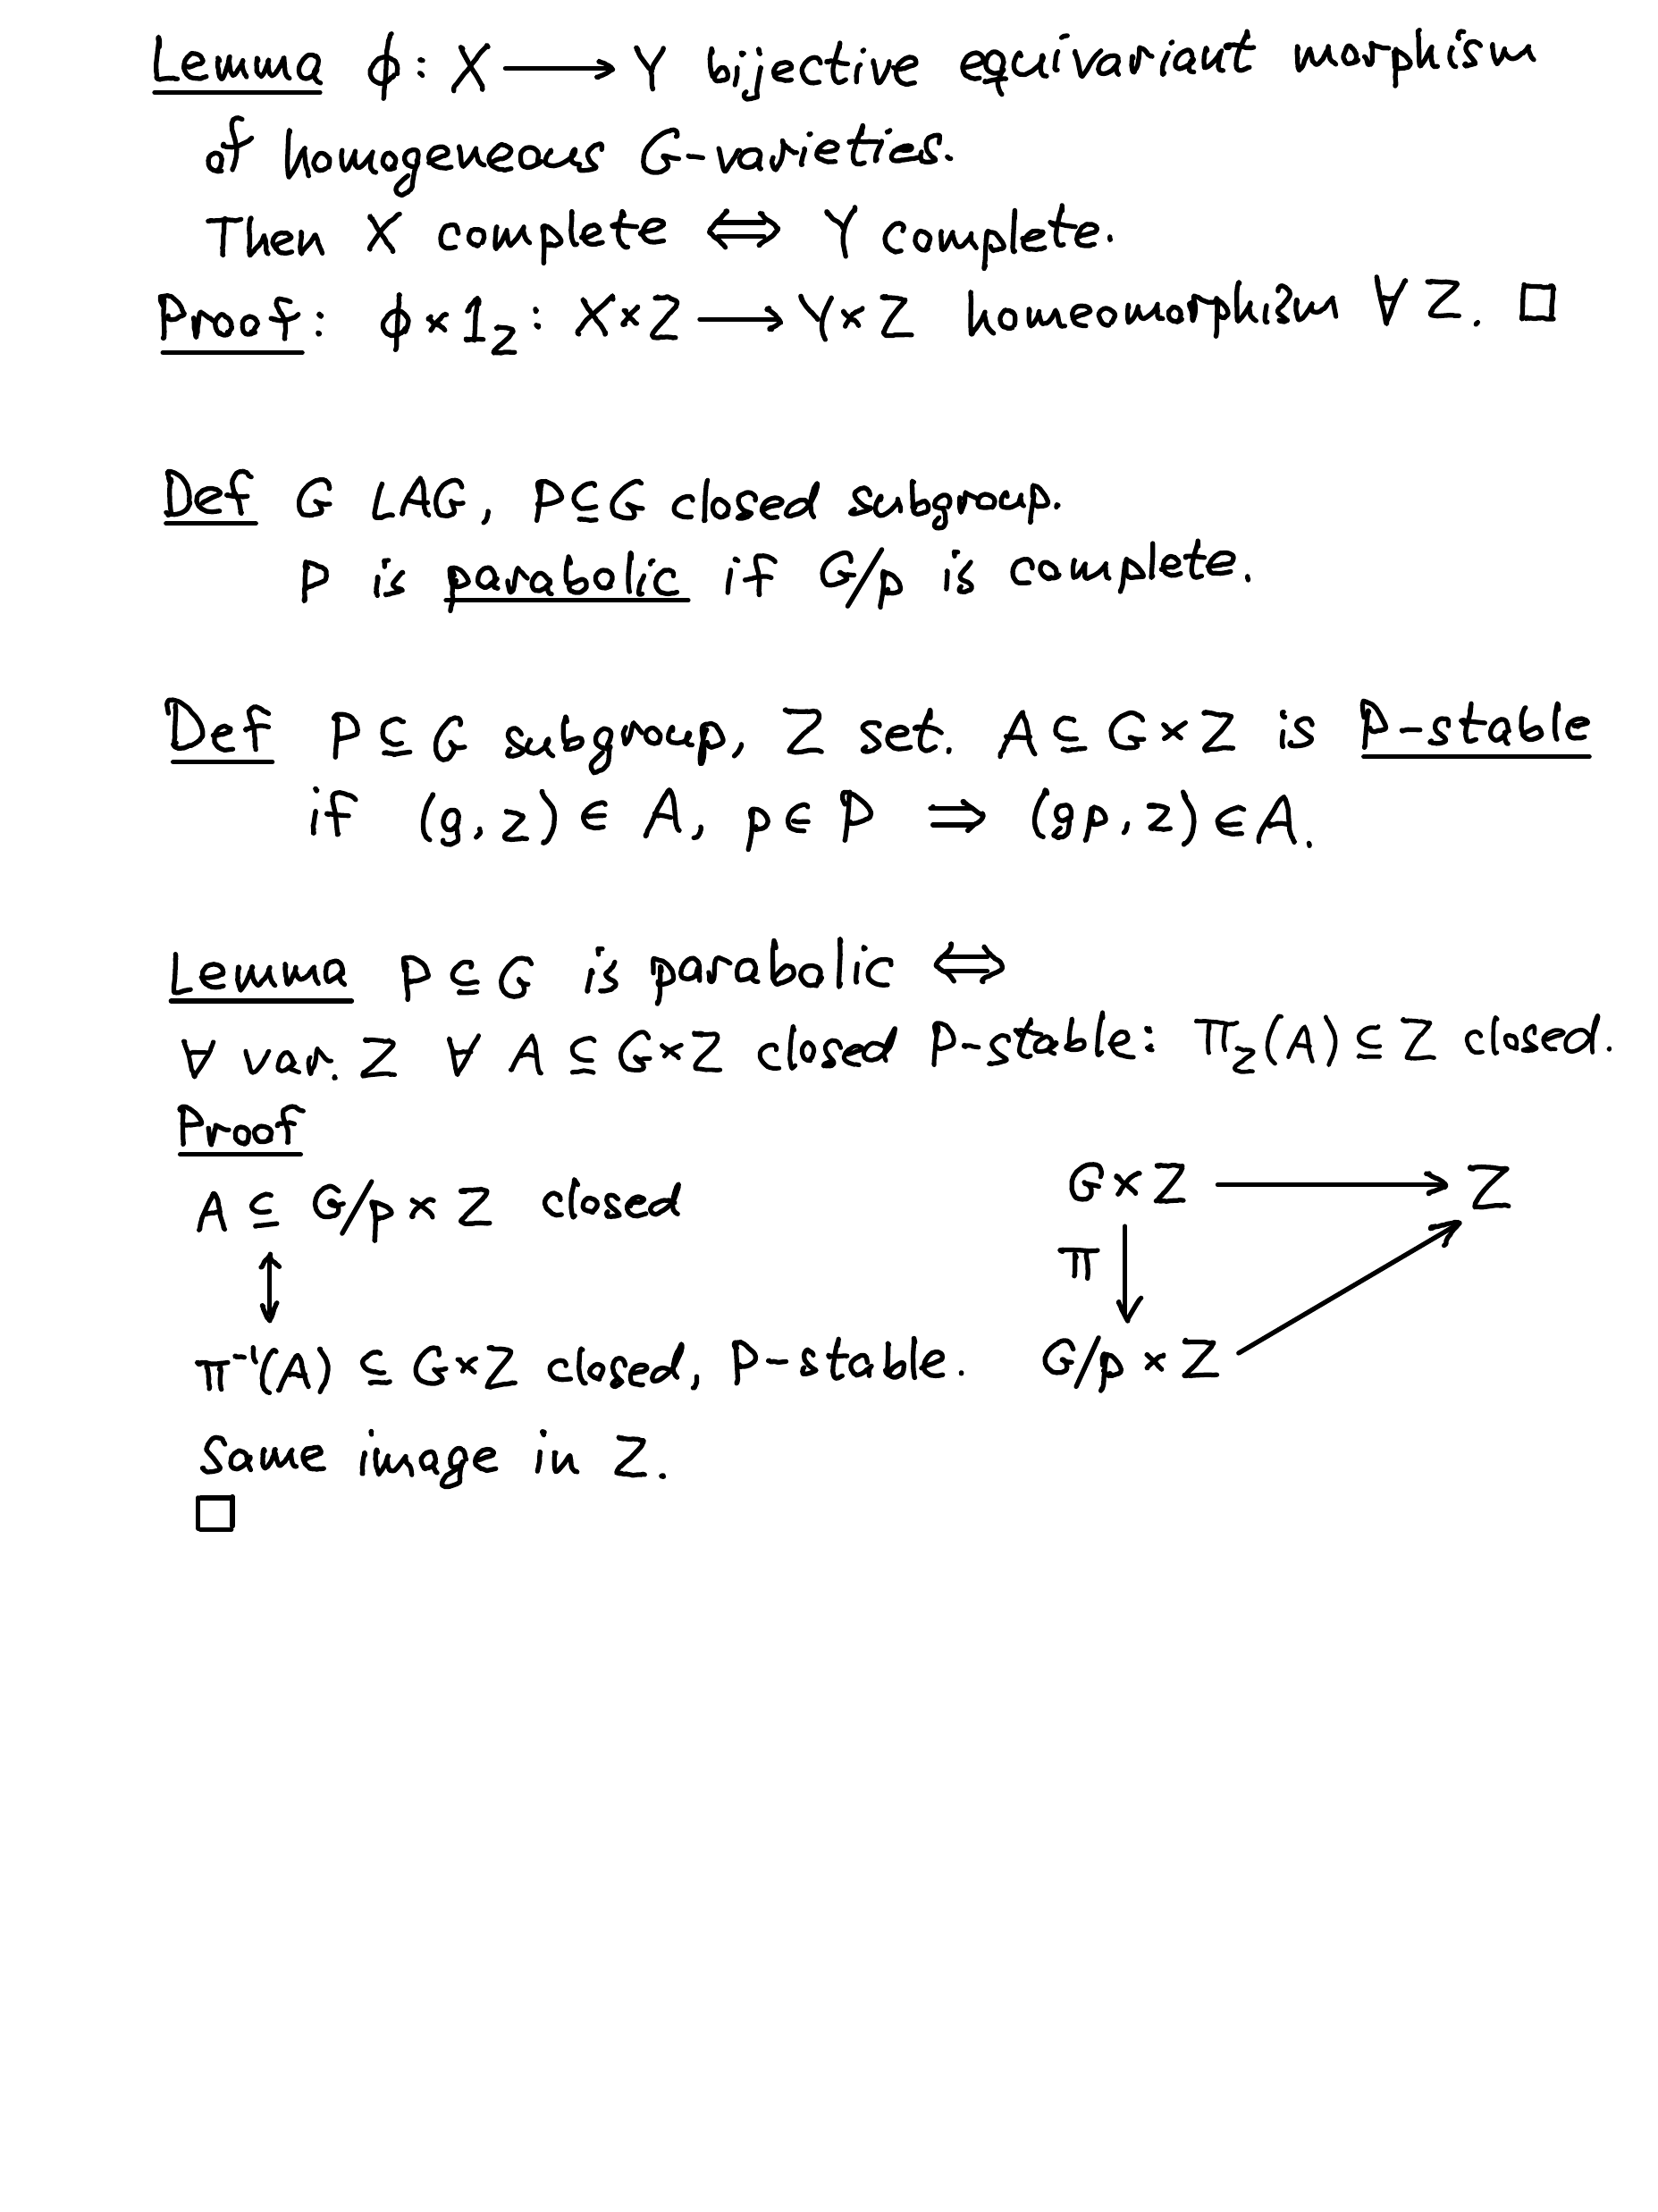 Lemma ϕ: X ⟶ Y bijective equivariant morphism
of homogeneous G-varieties.
Then X complete ⇔ Y complete.
Proof: ϕ×1_Z: X×Z ⟶ Y×Z homeomorphism ∀ Z. □
Def G LAG, P⊆G closed subgroup.
P is parabolic if G/P is complete.
Def P⊆G subgroup, Z set. A⊆G×Z is P-stable
if (g,z)∈A, p∈P ⇒ (gp,z)∈A.
Lemma P⊆G is parabolic ⇔
∀ var. Z ∀ A⊆G×Z closed P-stable: π_Z(A)⊆Z closed.
Proof
A⊆G/P×Z closed
↕
π⁻¹(A)⊆G×Z closed, P-stable.
Same image in Z.
□
G×Z ⟶ Z
π ↓
G/P×Z ↗